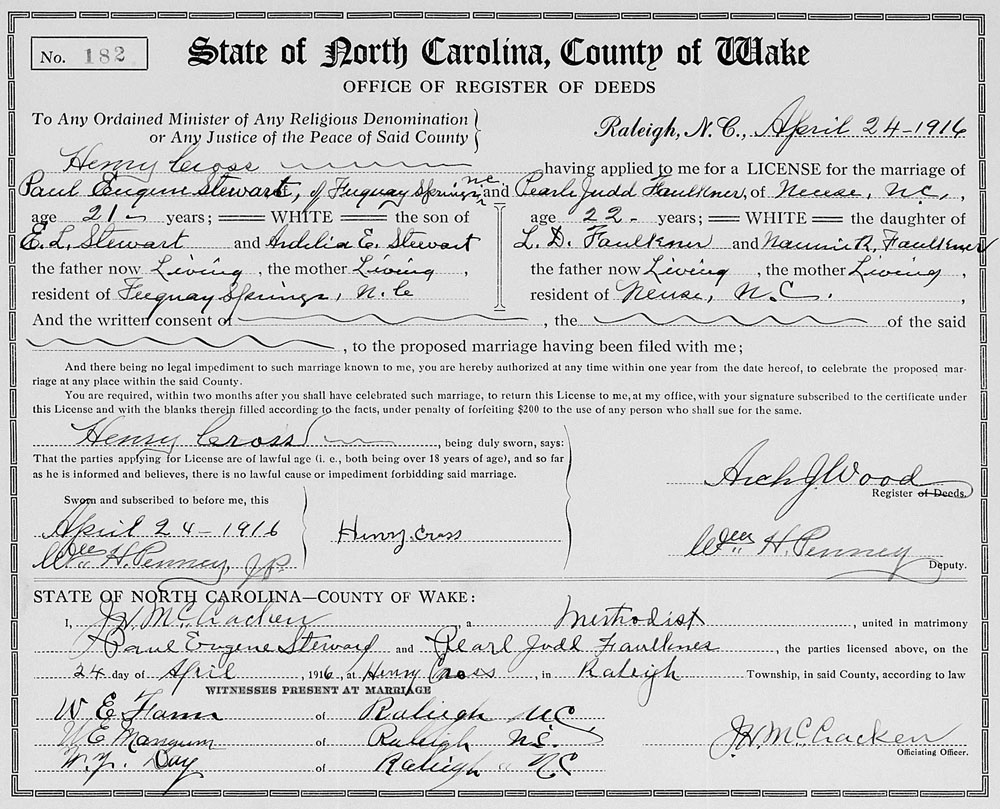 No. 182
State of North Carolina, County of Wake
OFFICE OF REGISTER OF DEEDS
To Any Ordained Minister of Any Religious Denomination
or Any Justice of the Peace of Said County
Raleigh, N. C., April 24-1916
Henry Cross having applied to me for a LICENSE for the marriage of
Paul Eugene Stewart, of Fuquay Springs NC and Pearle Judd Faulkner, of Neuse, N.C.,
age 21 years; WHITE the son of age 22 years; WHITE the daughter of
E. L. Stewart and Ardelia E. Stewart L. D. Faulkner and Nannie R. Faulkner
the father now Living, the mother Living, the father now Living, the mother Living,
resident of Fuquay Springs, N.C resident of Neuse, N.C.,
And the written consent of , the of the said
, to the proposed marriage having been filed with me;
And there being no legal impediment to such marriage known to me, you are hereby authorized at any time within one year from the date hereof, to celebrate the proposed mar-
riage at any place within the said County.
You are required, within two months after you shall have celebrated such marriage, to return this License to me, at my office, with your signature subscribed to the certificate under
this License and with the blanks therein filled according to the facts, under penalty of forfeiting $200 to the use of any person who shall sue for the same.
Henry Cross, being duly sworn, says:
That the parties applying for License are of lawful age (i. e., both being over 18 years of age), and so far
as he is informed and believes, there is no lawful cause or impediment forbidding said marriage.
Arch J. Wood
Register of Deeds.
Sworn and subscribed to before me, this
April 24-1916
Henry Cross
Wm H. Penney, J.P.
Wm H. Penney
Deputy.
STATE OF NORTH CAROLINA—COUNTY OF WAKE:
I, J. H. McCracken, a Methodist, united in matrimony
Paul Eugene Steward and Pearl Judd Faulkner, the parties licensed above, on the
24 day of April, 1916, at Henry Cross, in Raleigh Township, in said County, according to law
WITNESSES PRESENT AT MARRIAGE
W E of Raleigh NC
W E Mangum of Raleigh N.C.
Day of Raleigh NC
J. H. McCracken
Officiating Officer.